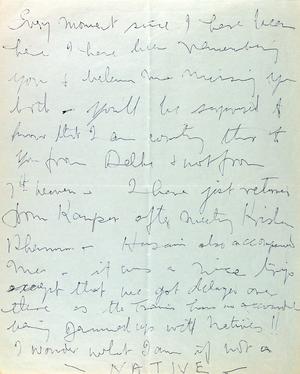 Every moment since I have been
here I have been remembering
you & believe me missing you
both - you'll be surprised to
know that I am writing this to
you from Delhi & not from
7th heaven - I have just returned
from Kanpur after meeting Krishn
also accompanied
me - it was a nice trip
except that we got delayed over
there as the trains have
being jammed up with Natives!!
I wonder what I am if not a
- NATIVE -